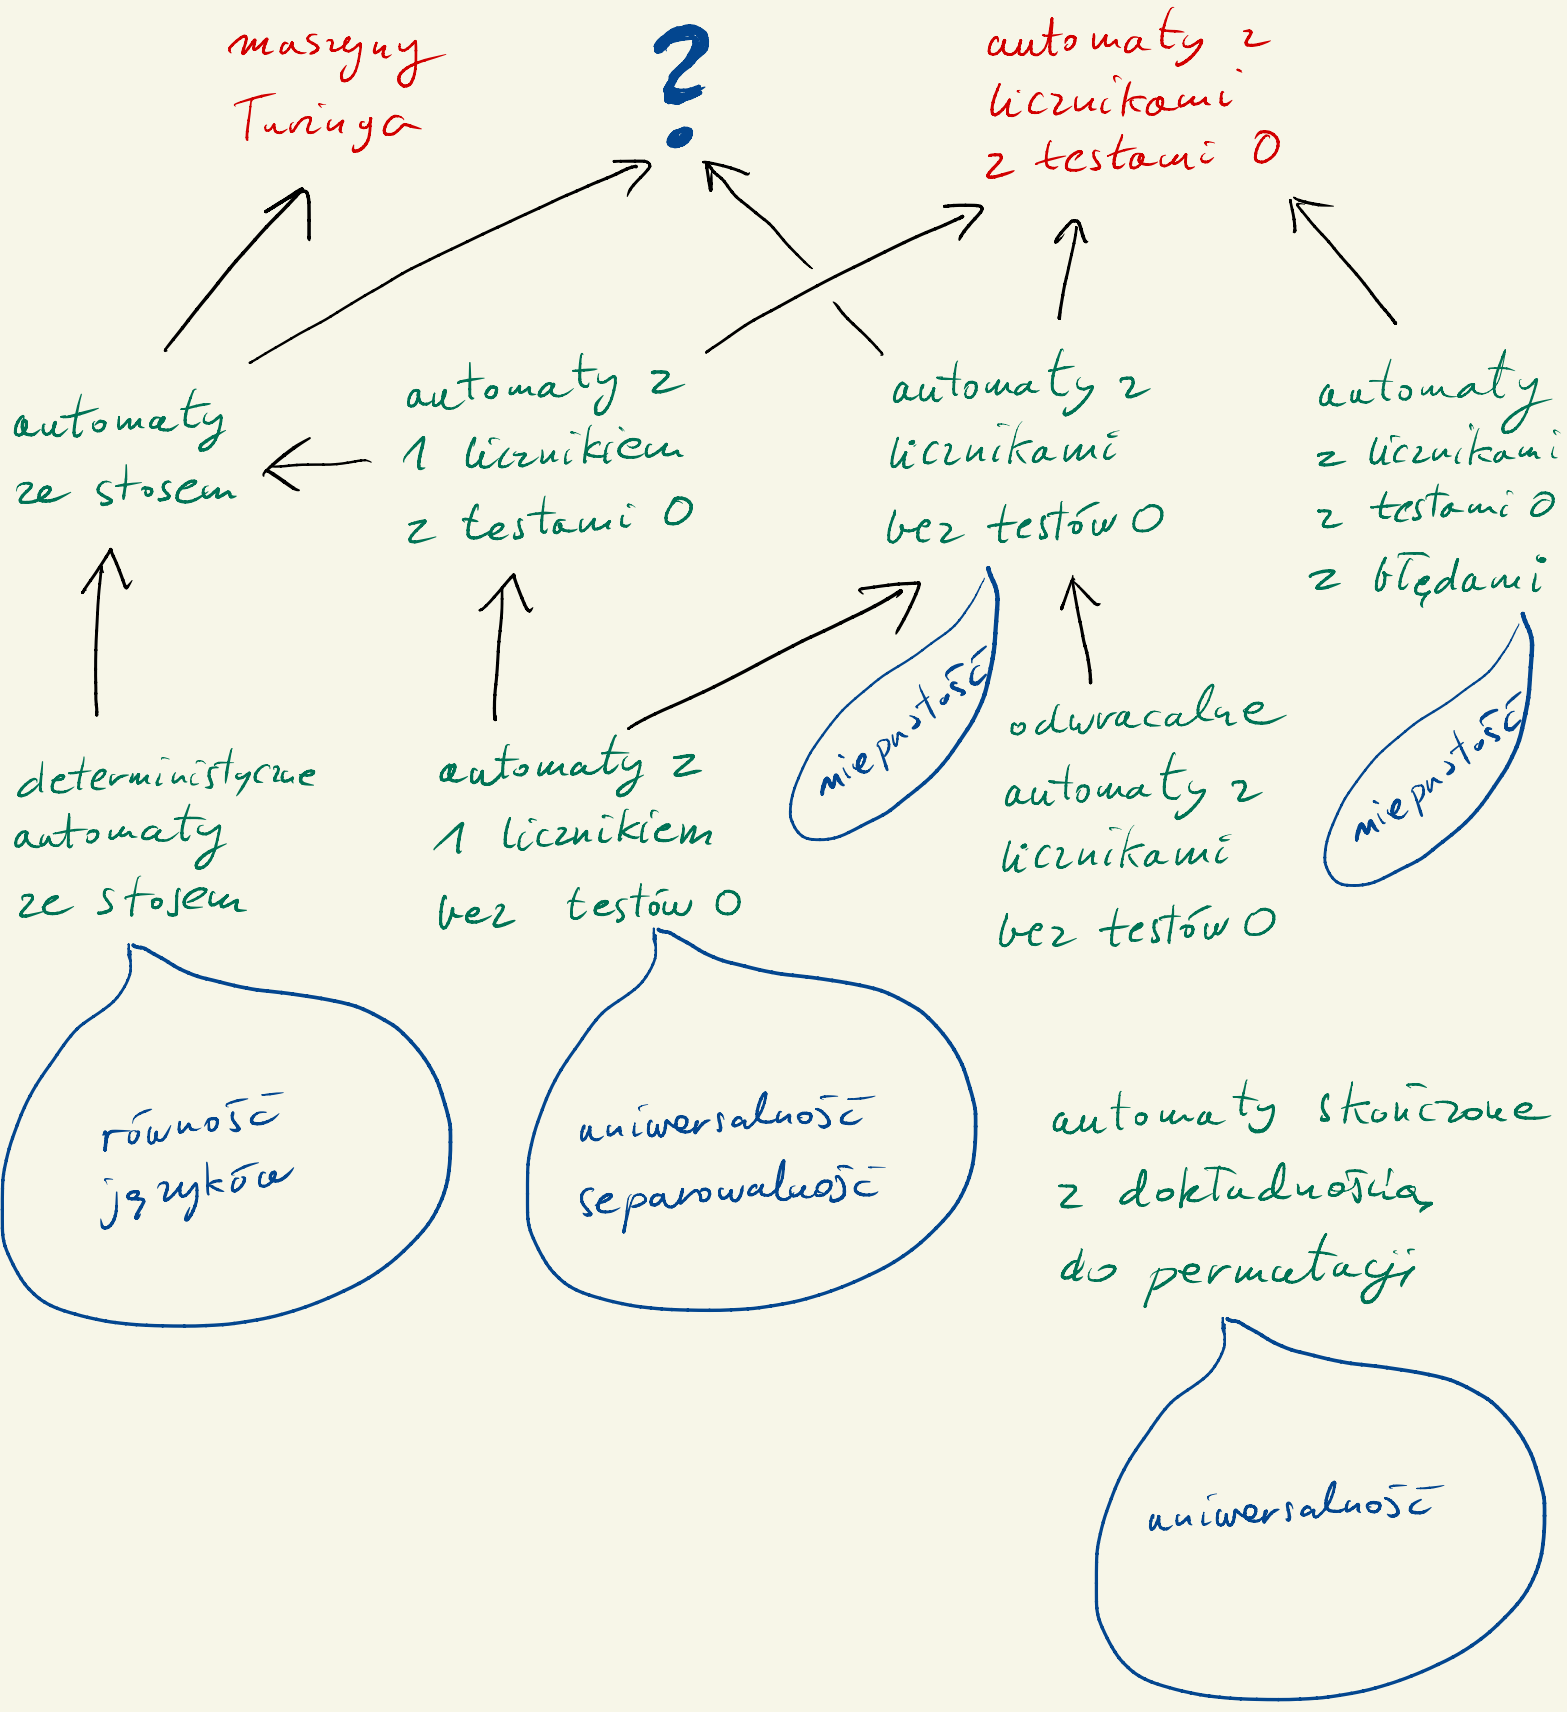 maszyny
Turinga
?
automaty z
licznikami
z testami 0
automaty
ze stosem
automaty z
1 licznikiem
z testami 0
automaty z
licznikami
bez testów 0
automaty
z licznikami
z testami 0
z błędami
deterministyczne
automaty
ze stosem
automaty z
1 licznikiem
bez testów 0
niepustość
odwracalne
automaty z
licznikami
bez testów 0
niepustość
równość
języków
uniwersalność
separowalność
automaty skończone
z dokładnością
do permutacji
uniwersalność